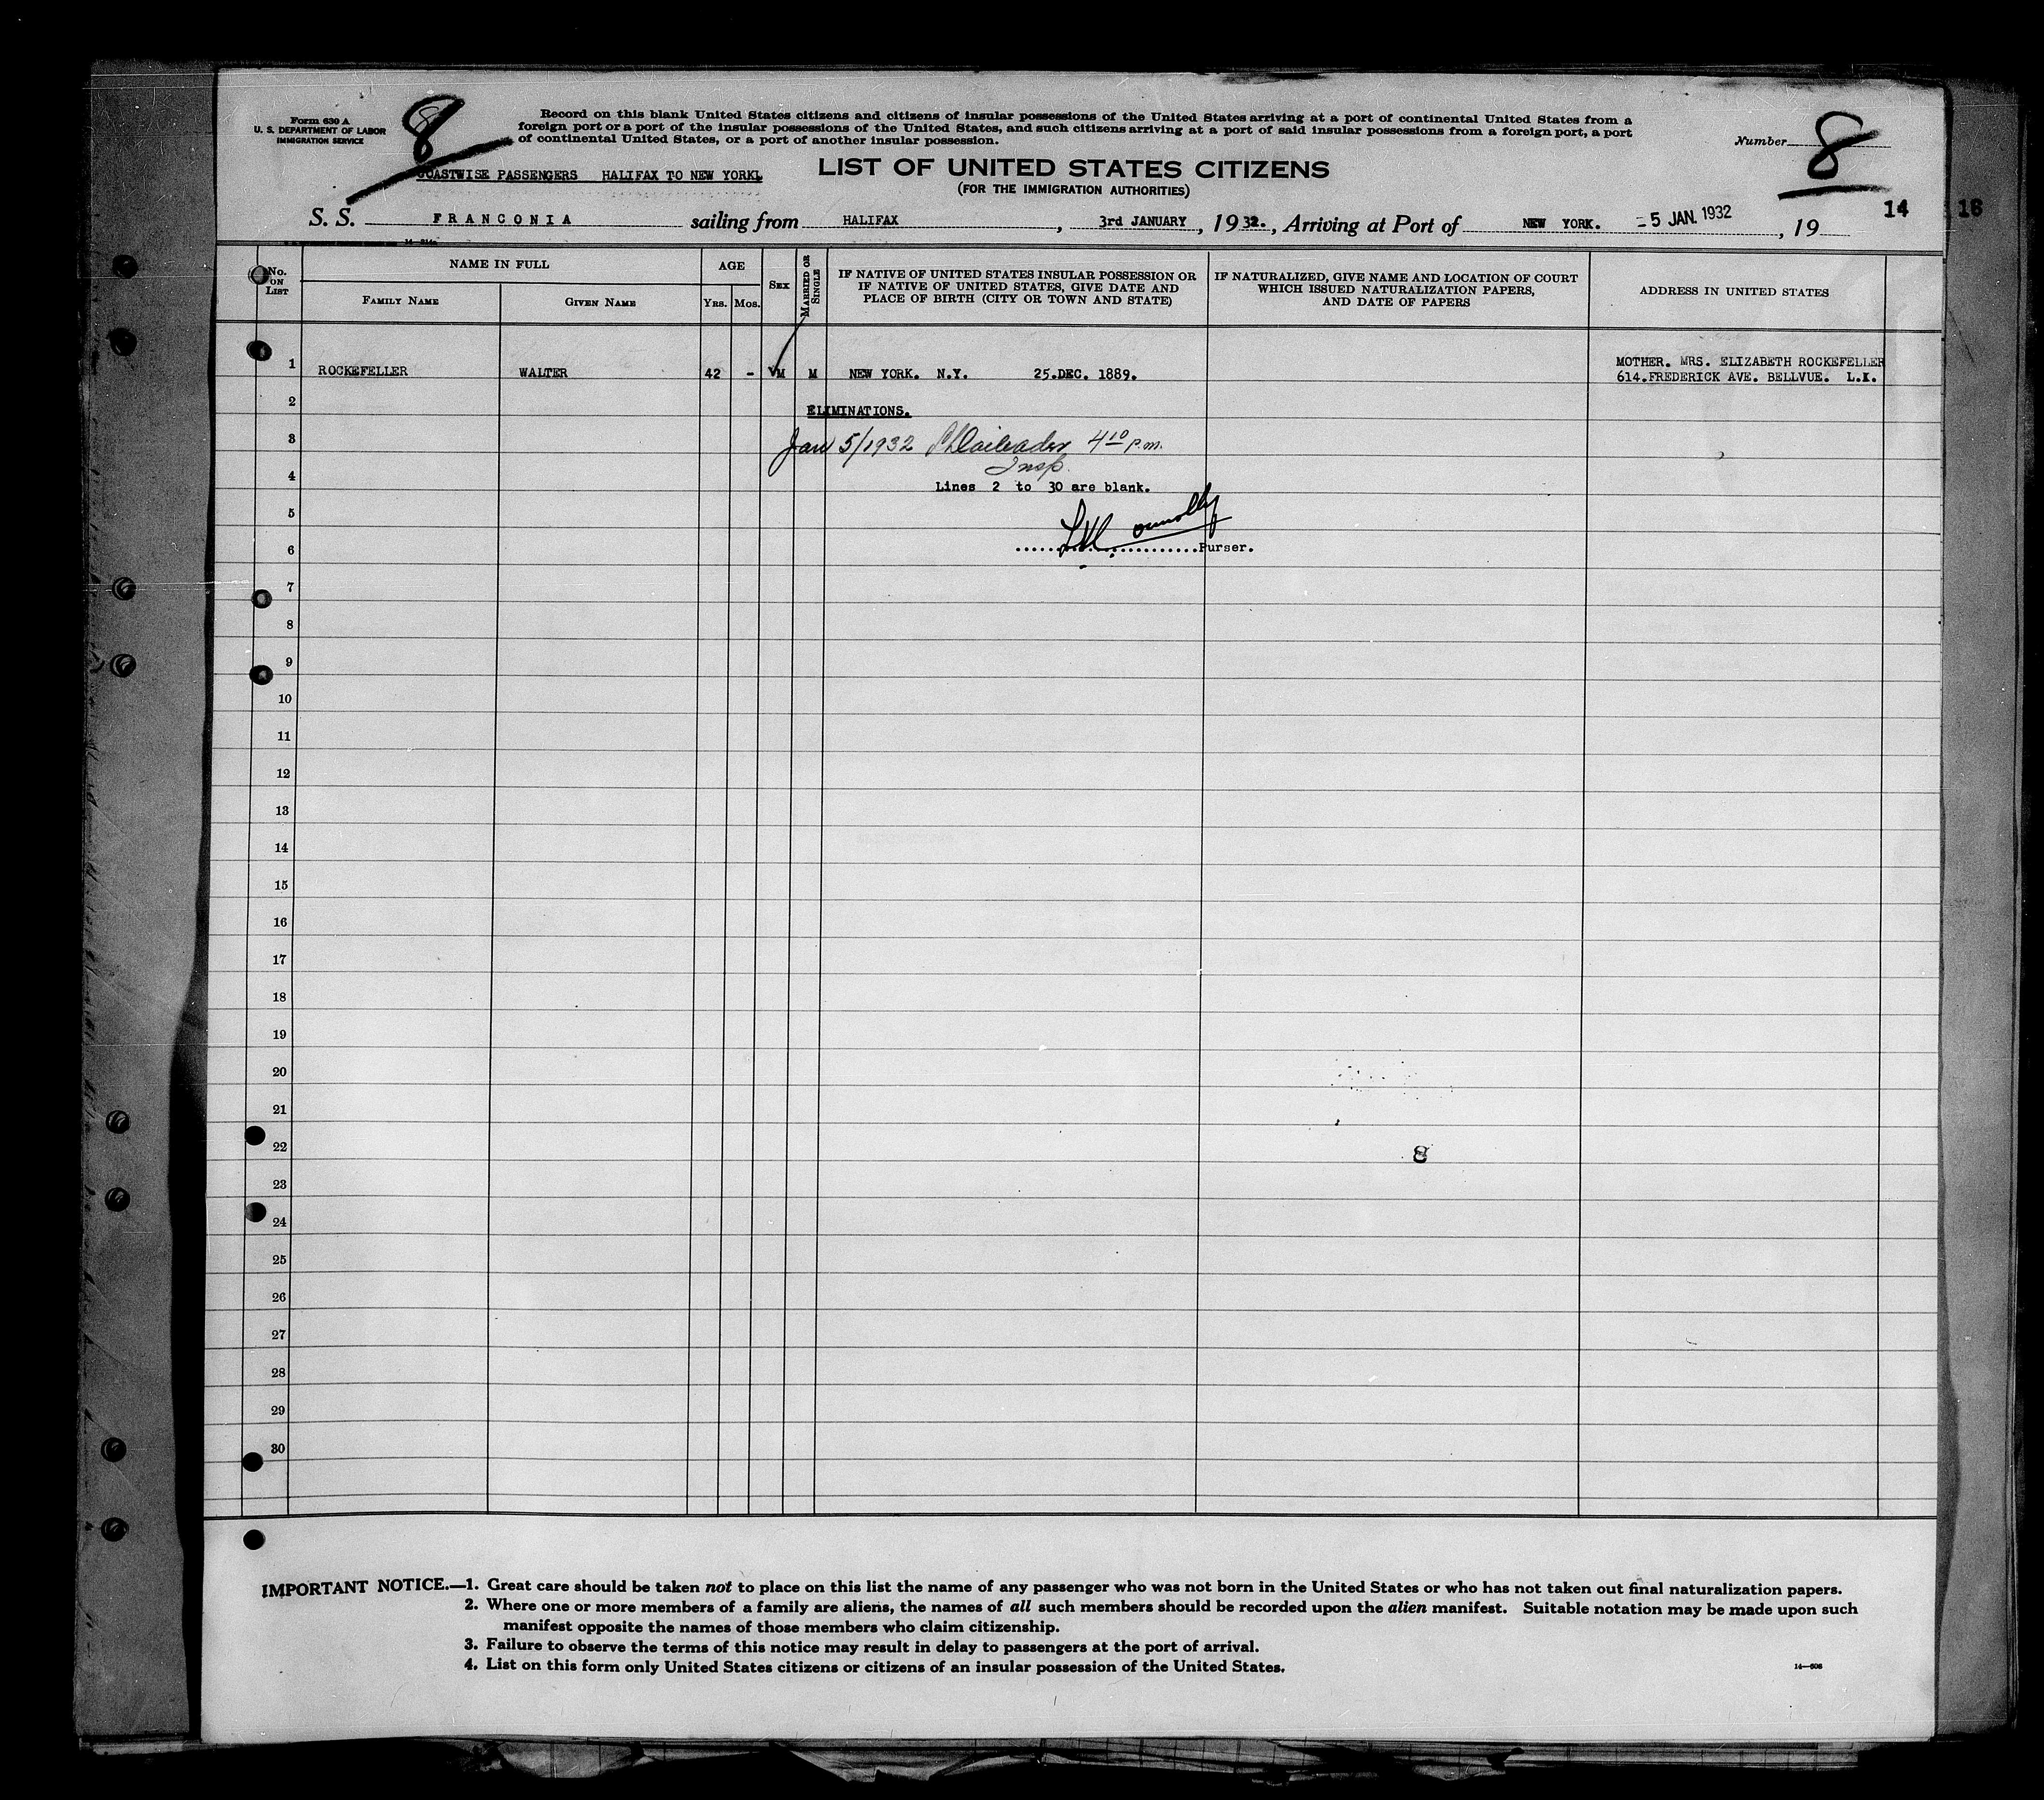 Form 630 A
U. S. DEPARTMENT OF LABOR
IMMIGRATION SERVICE
8
Record on this blank United States citizens and citizens of insular possessions of the United States arriving at a port of continental United States from a
foreign port or a port of the insular possessions of the United States, and such citizens arriving at a port of said insular possessions from a foreign port, a port
of continental United States, or a port of another insular possession.
Number 8
COASTWISE PASSENGERS HALIFAX TO NEW YORK.
LIST OF UNITED STATES CITIZENS
(FOR THE IMMIGRATION AUTHORITIES)
S. S. FRANCONIA sailing from HALIFAX, 3rd JANUARY, 1932., Arriving at Port of NEW YORK. -5 JAN. 1932, 19
14 16
No. ON LIST
NAME IN FULL
FAMILY NAME
GIVEN NAME
AGE
YRS. MOS.
SEX
MARRIED OR SINGLE
IF NATIVE OF UNITED STATES INSULAR POSSESSION OR
IF NATIVE OF UNITED STATES, GIVE DATE AND
PLACE OF BIRTH (CITY OR TOWN AND STATE)
IF NATURALIZED, GIVE NAME AND LOCATION OF COURT
WHICH ISSUED NATURALIZATION PAPERS,
AND DATE OF PAPERS
ADDRESS IN UNITED STATES
MOTHER. MRS. ELIZABETH ROCKEFELLER
1 ROCKEFELLER WALTER 42 - M M NEW YORK. N.Y. 25.DEC. 1889. 614.FREDERICK AVE. BELLVUE. L.I.
2 ELIMINATIONS.
3 Jan 5/1932 4 10 p.m.
Insp.
4 Lines 2 to 30 are blank.
5
6 Connolly Purser.
7
8
9
10
11
12
13
14
15
16
17
18
19
20
21
22 8
23
24
25
26
27
28
29
30
IMPORTANT NOTICE.—1. Great care should be taken not to place on this list the name of any passenger who was not born in the United States or who has not taken out final naturalization papers.
2. Where one or more members of a family are aliens, the names of all such members should be recorded upon the alien manifest. Suitable notation may be made upon such
manifest opposite the names of those members who claim citizenship.
3. Failure to observe the terms of this notice may result in delay to passengers at the port of arrival.
4. List on this form only United States citizens or citizens of an insular possession of the United States.
14—606